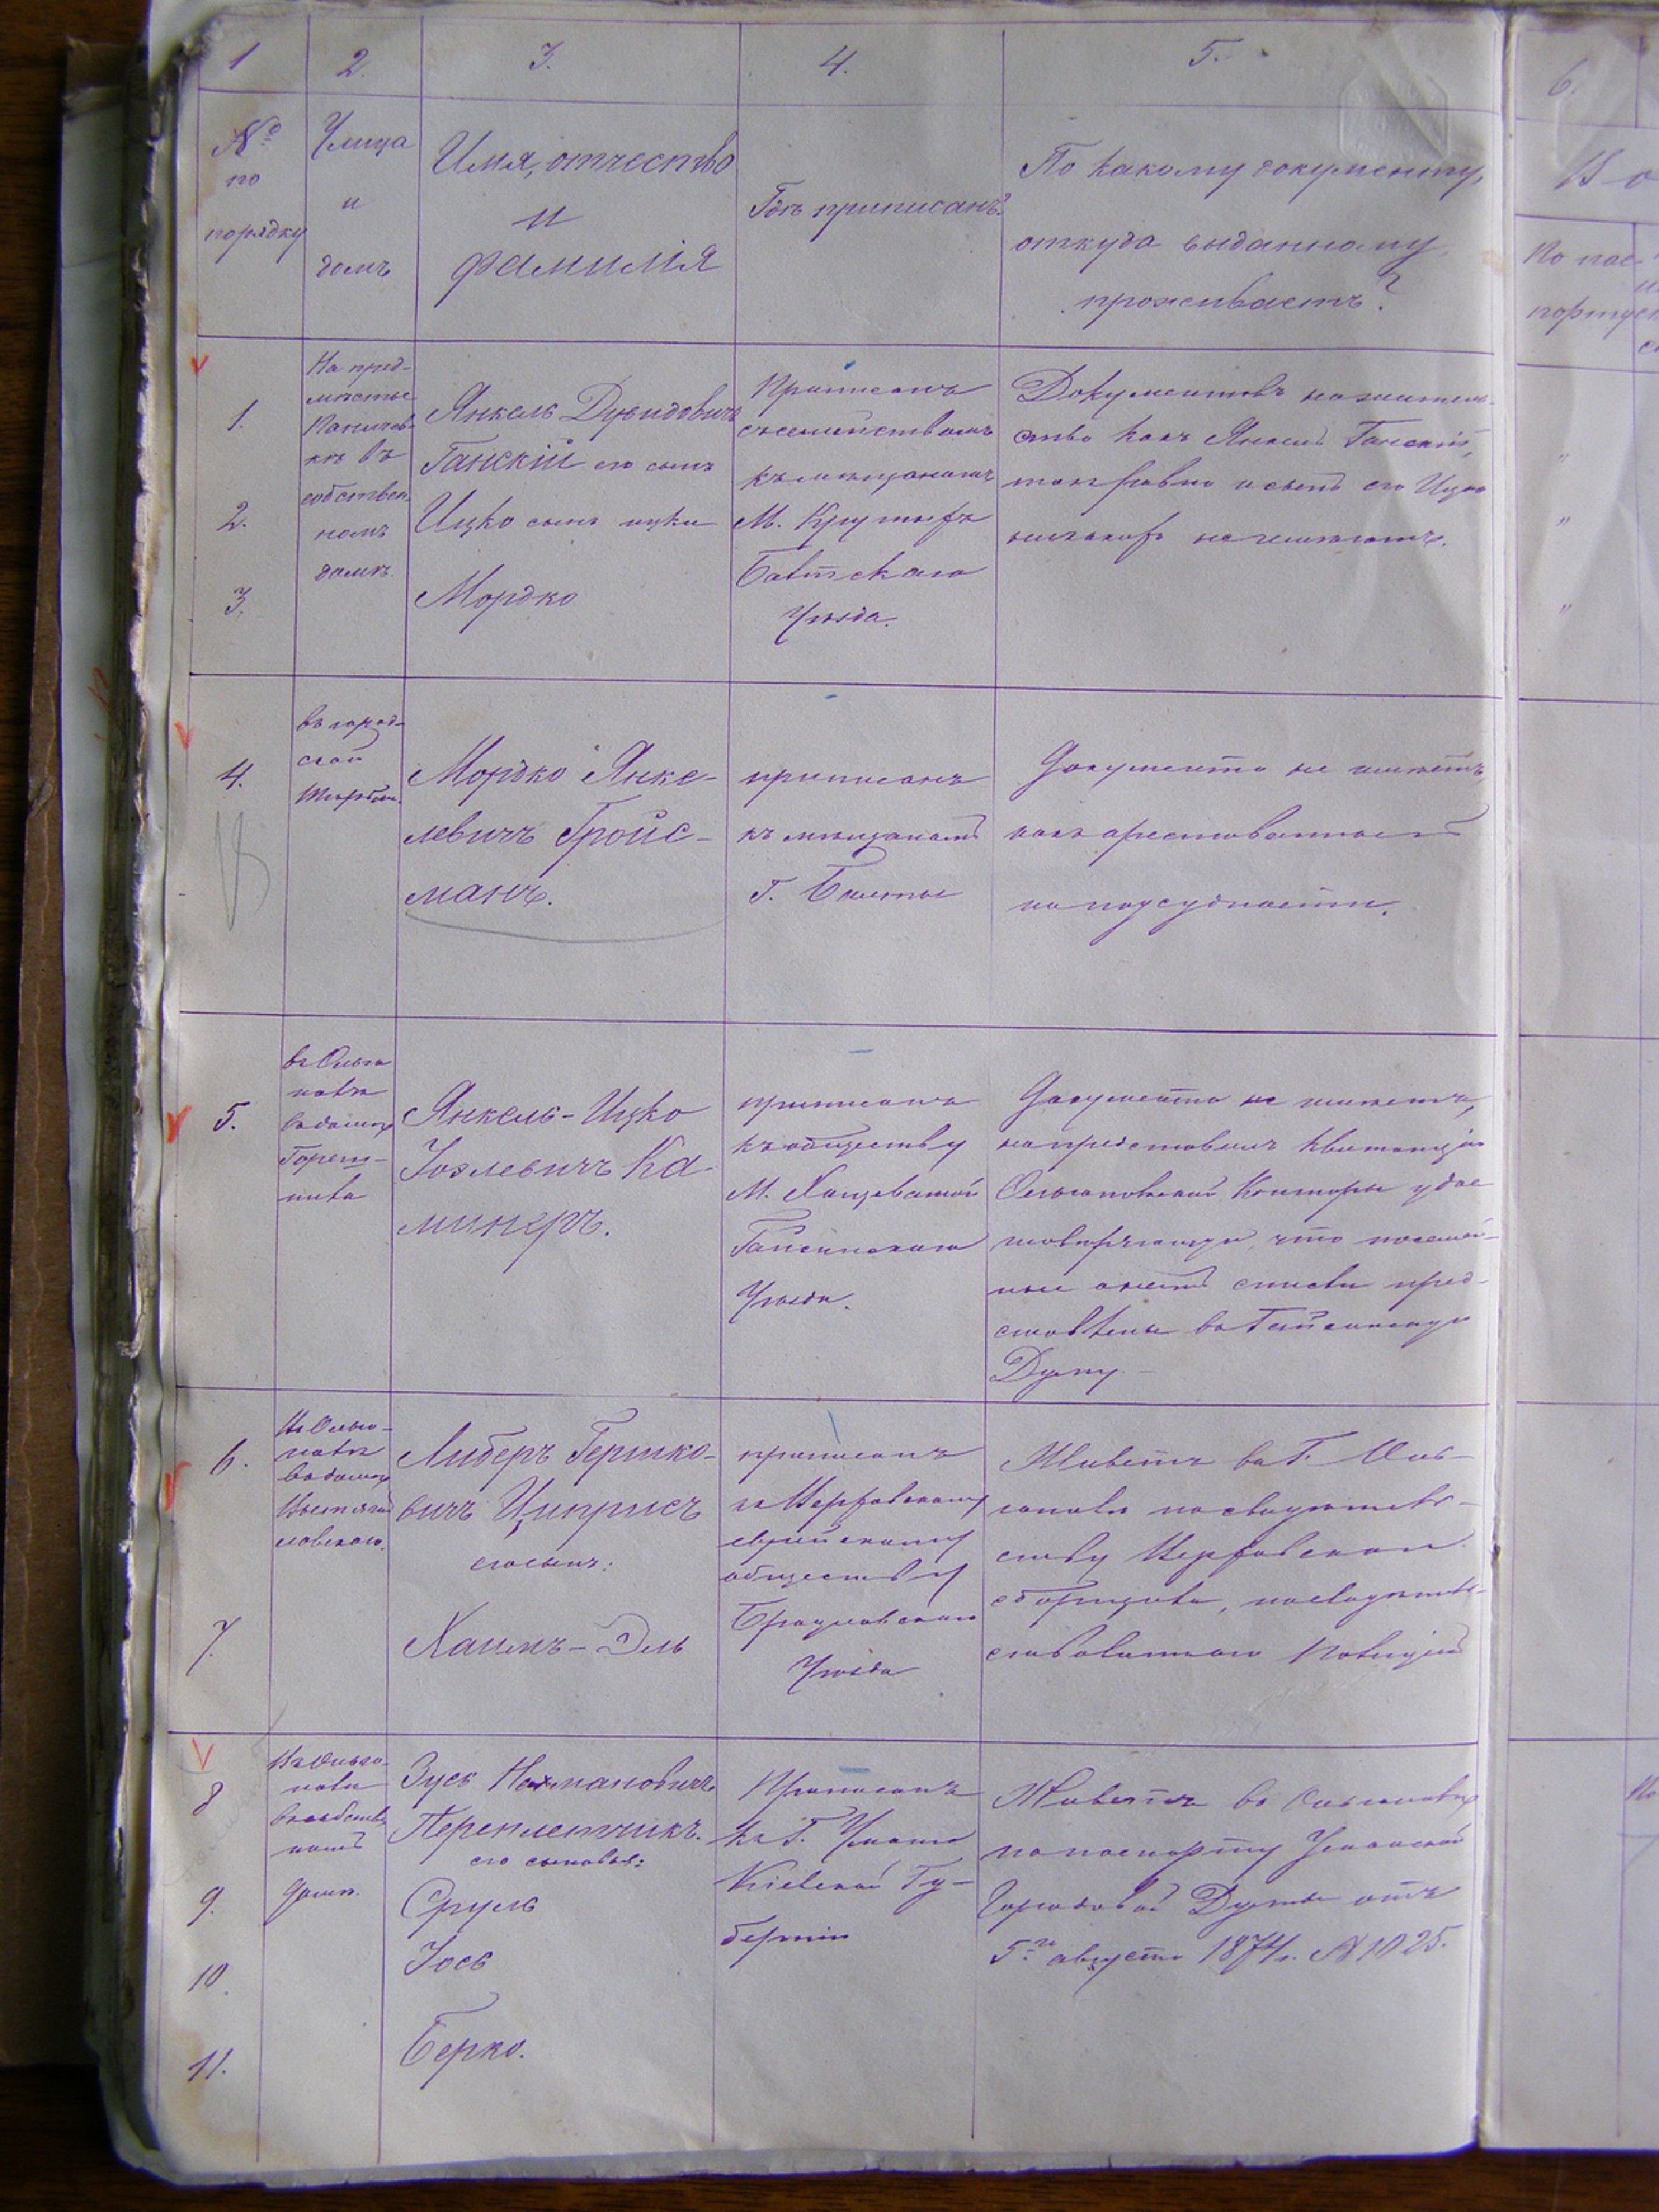 1
2.
3.
4.
5.
6.
№
по
порядку
Улица
и
домъ
Имя, отчество
и
фамилія
Гдѣ приписанъ?
По какому документу,
откуда выданному
проживаетъ?
По пас-
порту
1.
2.
3.
На пред-
мѣстье
въ
собствен
номъ
домѣ.
Янкель Дувидовичъ
Ганскій его сынъ
Ицко сынъ ицки
Мордко
Приписанъ
съ семействомъ
къ мѣщанамъ
М. Крутыхъ
Балтскаго
Уѣзда.
Документовъ на житель-
ство какъ Янкель Ганскій,
такъ равно и сынъ его Ицко
никакихъ не имѣютъ.
"
"
"
4.
въ город-
ской
Мордко Янке-
левичъ Гройс-
манъ.
приписанъ
къ мѣщанамъ
Г. Балты
Документа не имѣетъ
какъ арестованный
по подсудности.
5.
въ Ольго
полѣ
въ домѣ
Янкель-Ицко
Іозлевичъ Ка-
минеръ.
приписанъ
къ обществу
М. Хащеватой
Гайсинскаго
Уѣзда.
Документа не имѣетъ,
но представилъ квитанцію
Конторы удос
товѣряющую, что посемей-
ные списки пред-
ставлены въ Гайсинскую
Думу.
6.
7.
въ домѣ
Либеръ Гершко-
вичъ Циприсъ
его сынъ:
Хаимъ-Эль
приписанъ
еврейскому
обществу
Брацлавскаго
Уѣзда
Живетъ въ Г. Оль-
гополѣ по свидѣтель-
ству
сборщика, засвидѣтель-
ствованному Полиціей
8
9.
10.
11.
въ собствен
номъ
домѣ.
Зусь Нахмановичъ
Переплетчикъ.
его сыновья:
Сруль
Іось
Берко.
Приписанъ
къ Г. Умани
Кіевской Гу-
берніи
Живетъ въ Ольгополѣ
по паспорту Уманской
Городовой Думы отъ
5го августа 1874 г. № 1025.